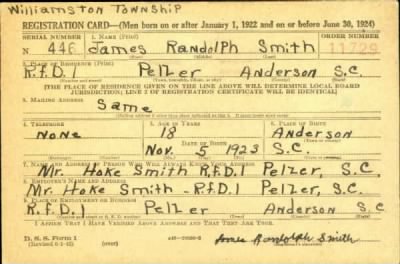 Williamston Township
REGISTRATION CARD—(Men born on or after January 1, 1922 and on or before June 30, 1924)
SERIAL NUMBER 1. NAME (Print) ORDER NUMBER
N 446 James Randolph Smith 11729
2. PLACE OF RESIDENCE (Print)
R.f.D. 1 Pelzer Anderson S.C.
[THE PLACE OF RESIDENCE GIVEN ON THE LINE ABOVE WILL DETERMINE LOCAL BOARD
JURISDICTION; LINE 2 OF REGISTRATION CERTIFICATE WILL BE IDENTICAL]
3. MAILING ADDRESS
Same
4. TELEPHONE 5. AGE IN YEARS 6. PLACE OF BIRTH
None 18 Anderson
DATE OF BIRTH
Nov. 5 1923 S.C.
7. NAME AND ADDRESS OF PERSON WHO WILL ALWAYS KNOW YOUR ADDRESS
Mr. Hoke Smith R.f.D.1 Pelzer, S.C.
8. EMPLOYER'S NAME AND ADDRESS
Mr. Hoke Smith - R.f.D.1 Pelzer, S.C.
9. PLACE OF EMPLOYMENT OR BUSINESS
R.f.D. 1 Pelzer Anderson S.C.
I AFFIRM THAT I HAVE VERIFIED ABOVE ANSWERS AND THAT THEY ARE TRUE.
D. S. S. Form 1
James Randolph Smith